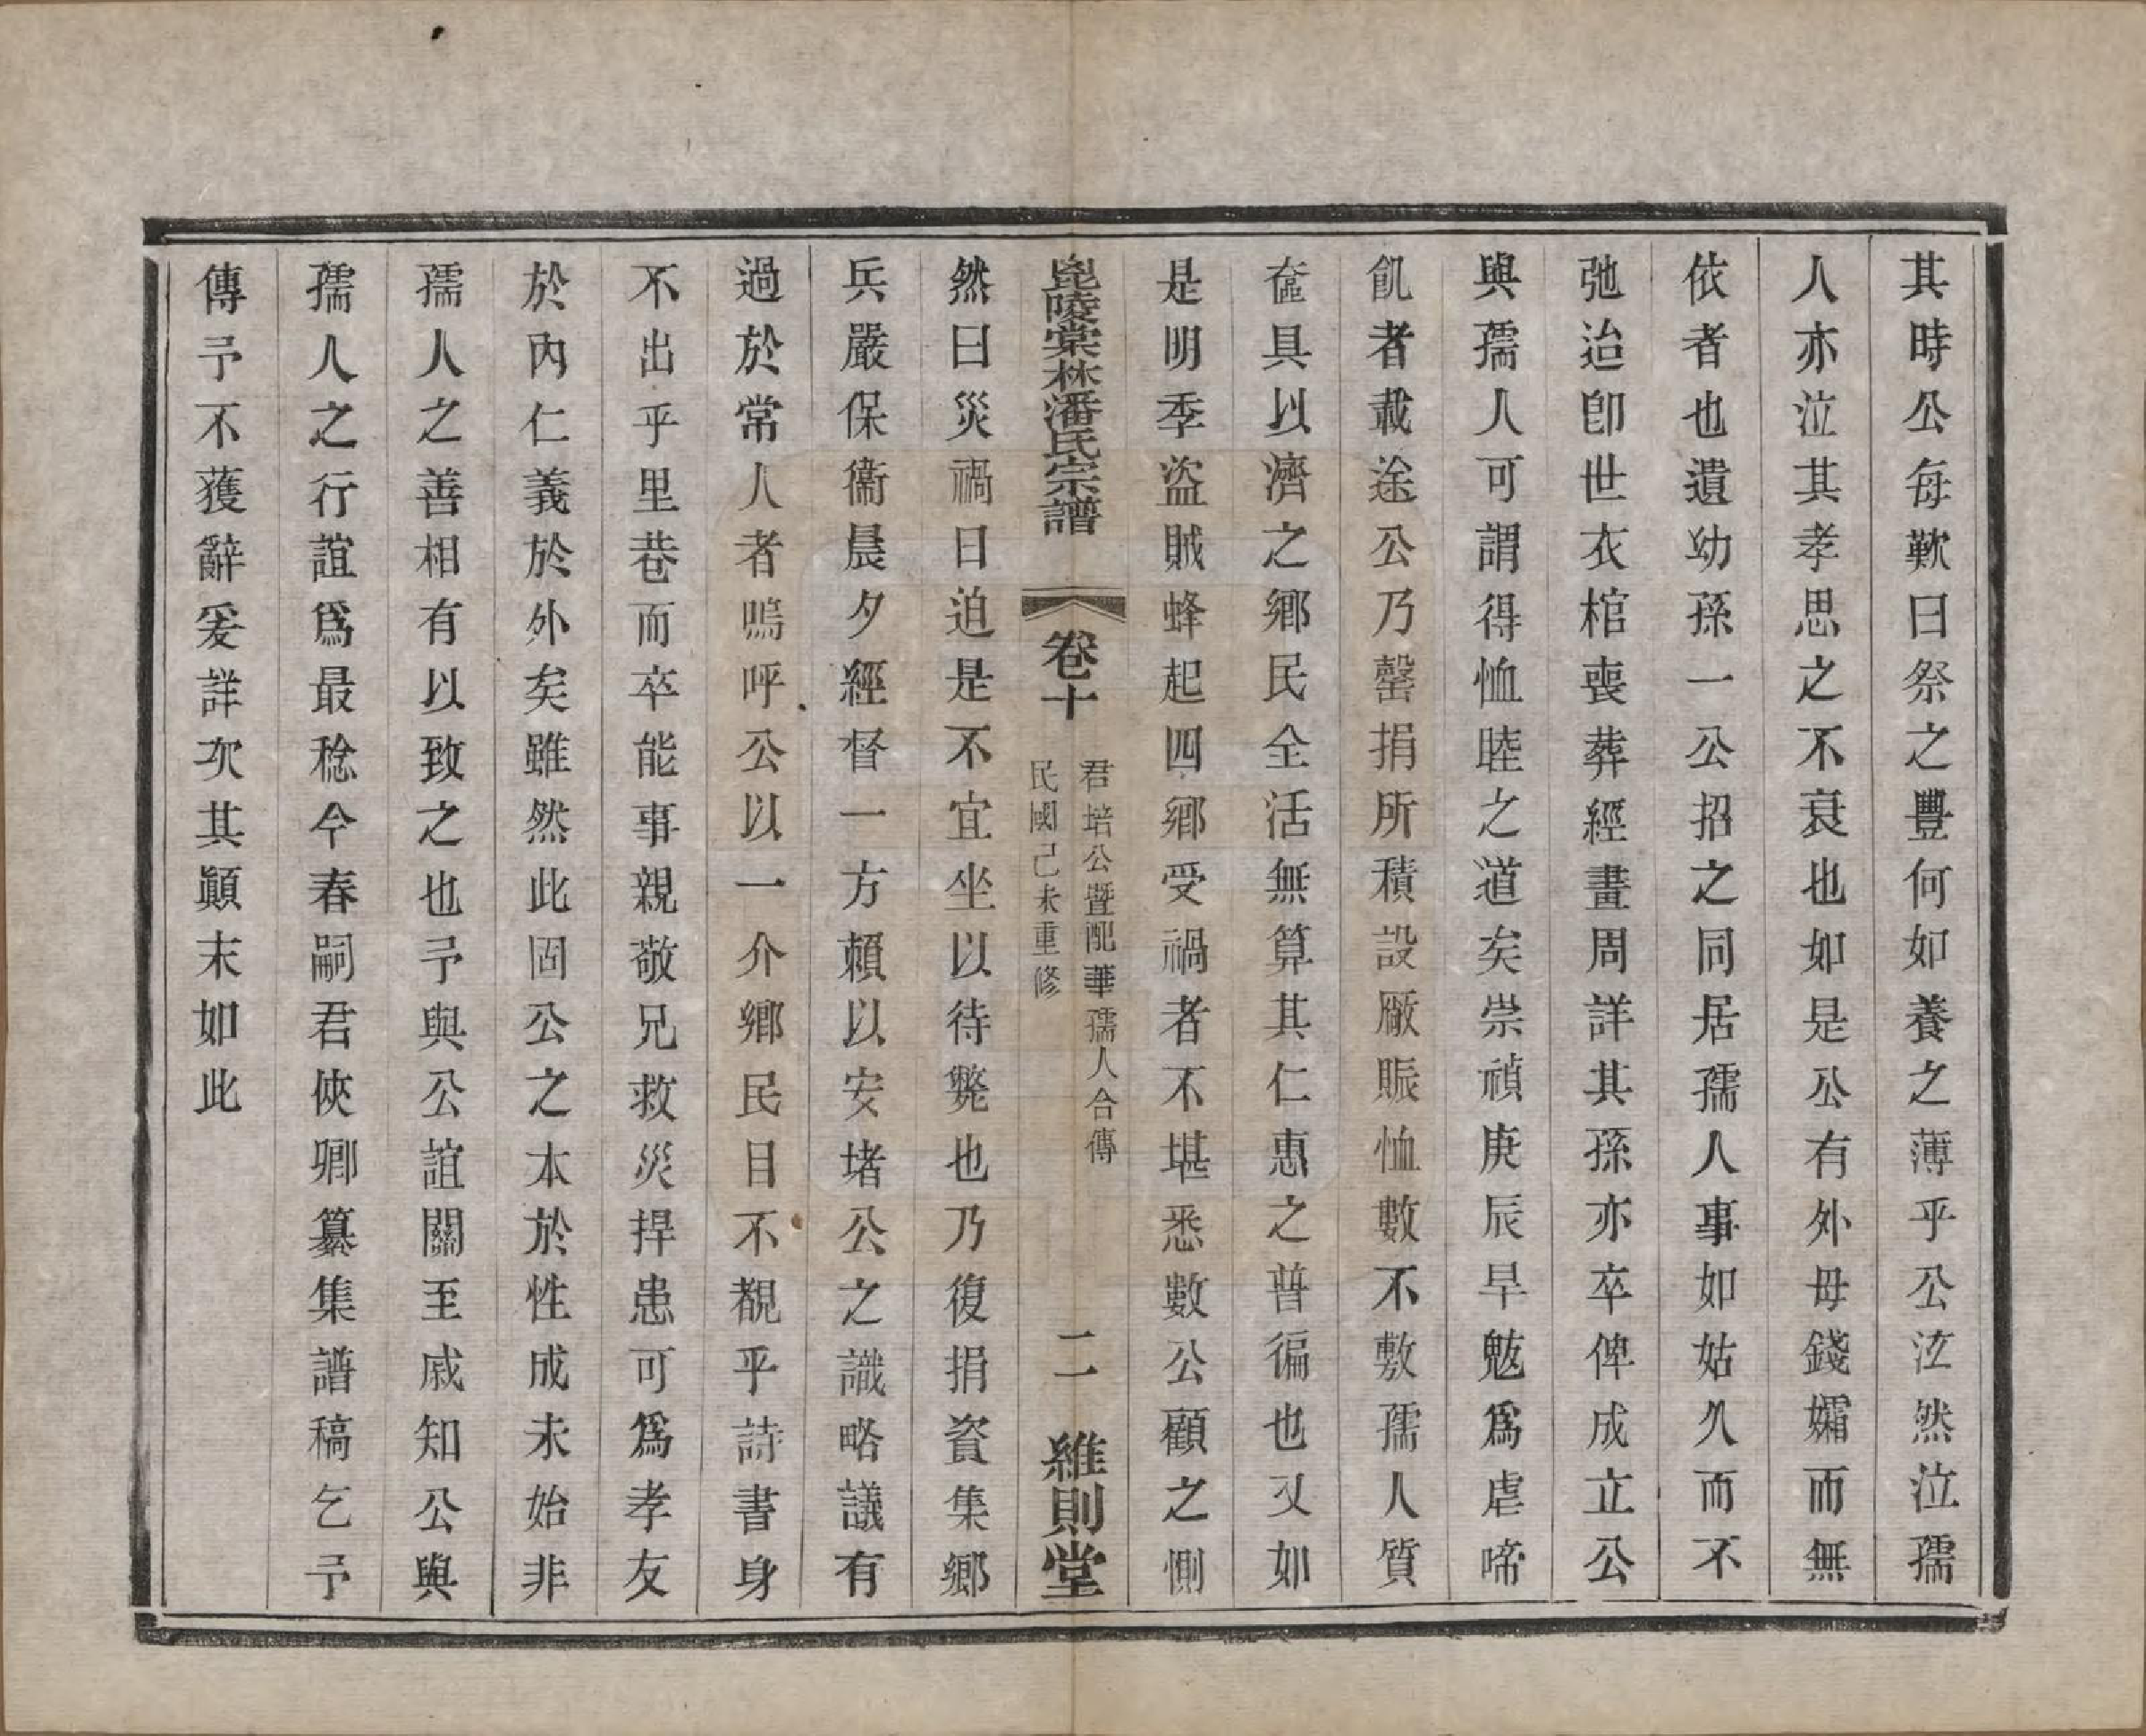 其時公每歎曰祭之豐何如養之薄乎公泫然泣孺
人亦泣其孝思之不衰也如是公有外母錢孀而無
依者也遺幼孫一公招之同居孺人事如姑久而不
弛迨卽世衣棺喪葬經畫周詳其孫亦卒俾成立公
與孺人可謂得恤睦之道矣崇禎庚辰旱魃爲虐啼
飢者載途公乃罄捐所積設厰賑恤數不敷孺人質
奩具以濟之鄉民全活無算其仁惠之普徧也又如
是明季盜賊蜂起四鄉受禍者不堪悉數公顧之惻
毘陵棠林潘氏宗譜
卷十
君培公暨配華孺人合傳
民國己未重修
二
維則堂
然曰災禍日迫是不宜坐以待斃也乃復捐資集鄉
兵嚴保衞晨夕經督一方賴以安堵公之識略議有
過於常人者嗚呼公以一介鄉民目不覩乎詩書身
不出乎里巷而卒能事親敬兄救災捍患可爲孝友
於內仁義於外矣雖然此固公之本於性成未始非
孺人之善相有以致之也予與公誼關至戚知公與
孺人之行誼爲最稔今春嗣君俠卿纂集譜稿乞予
傳予不獲辭爰詳次其顚末如此